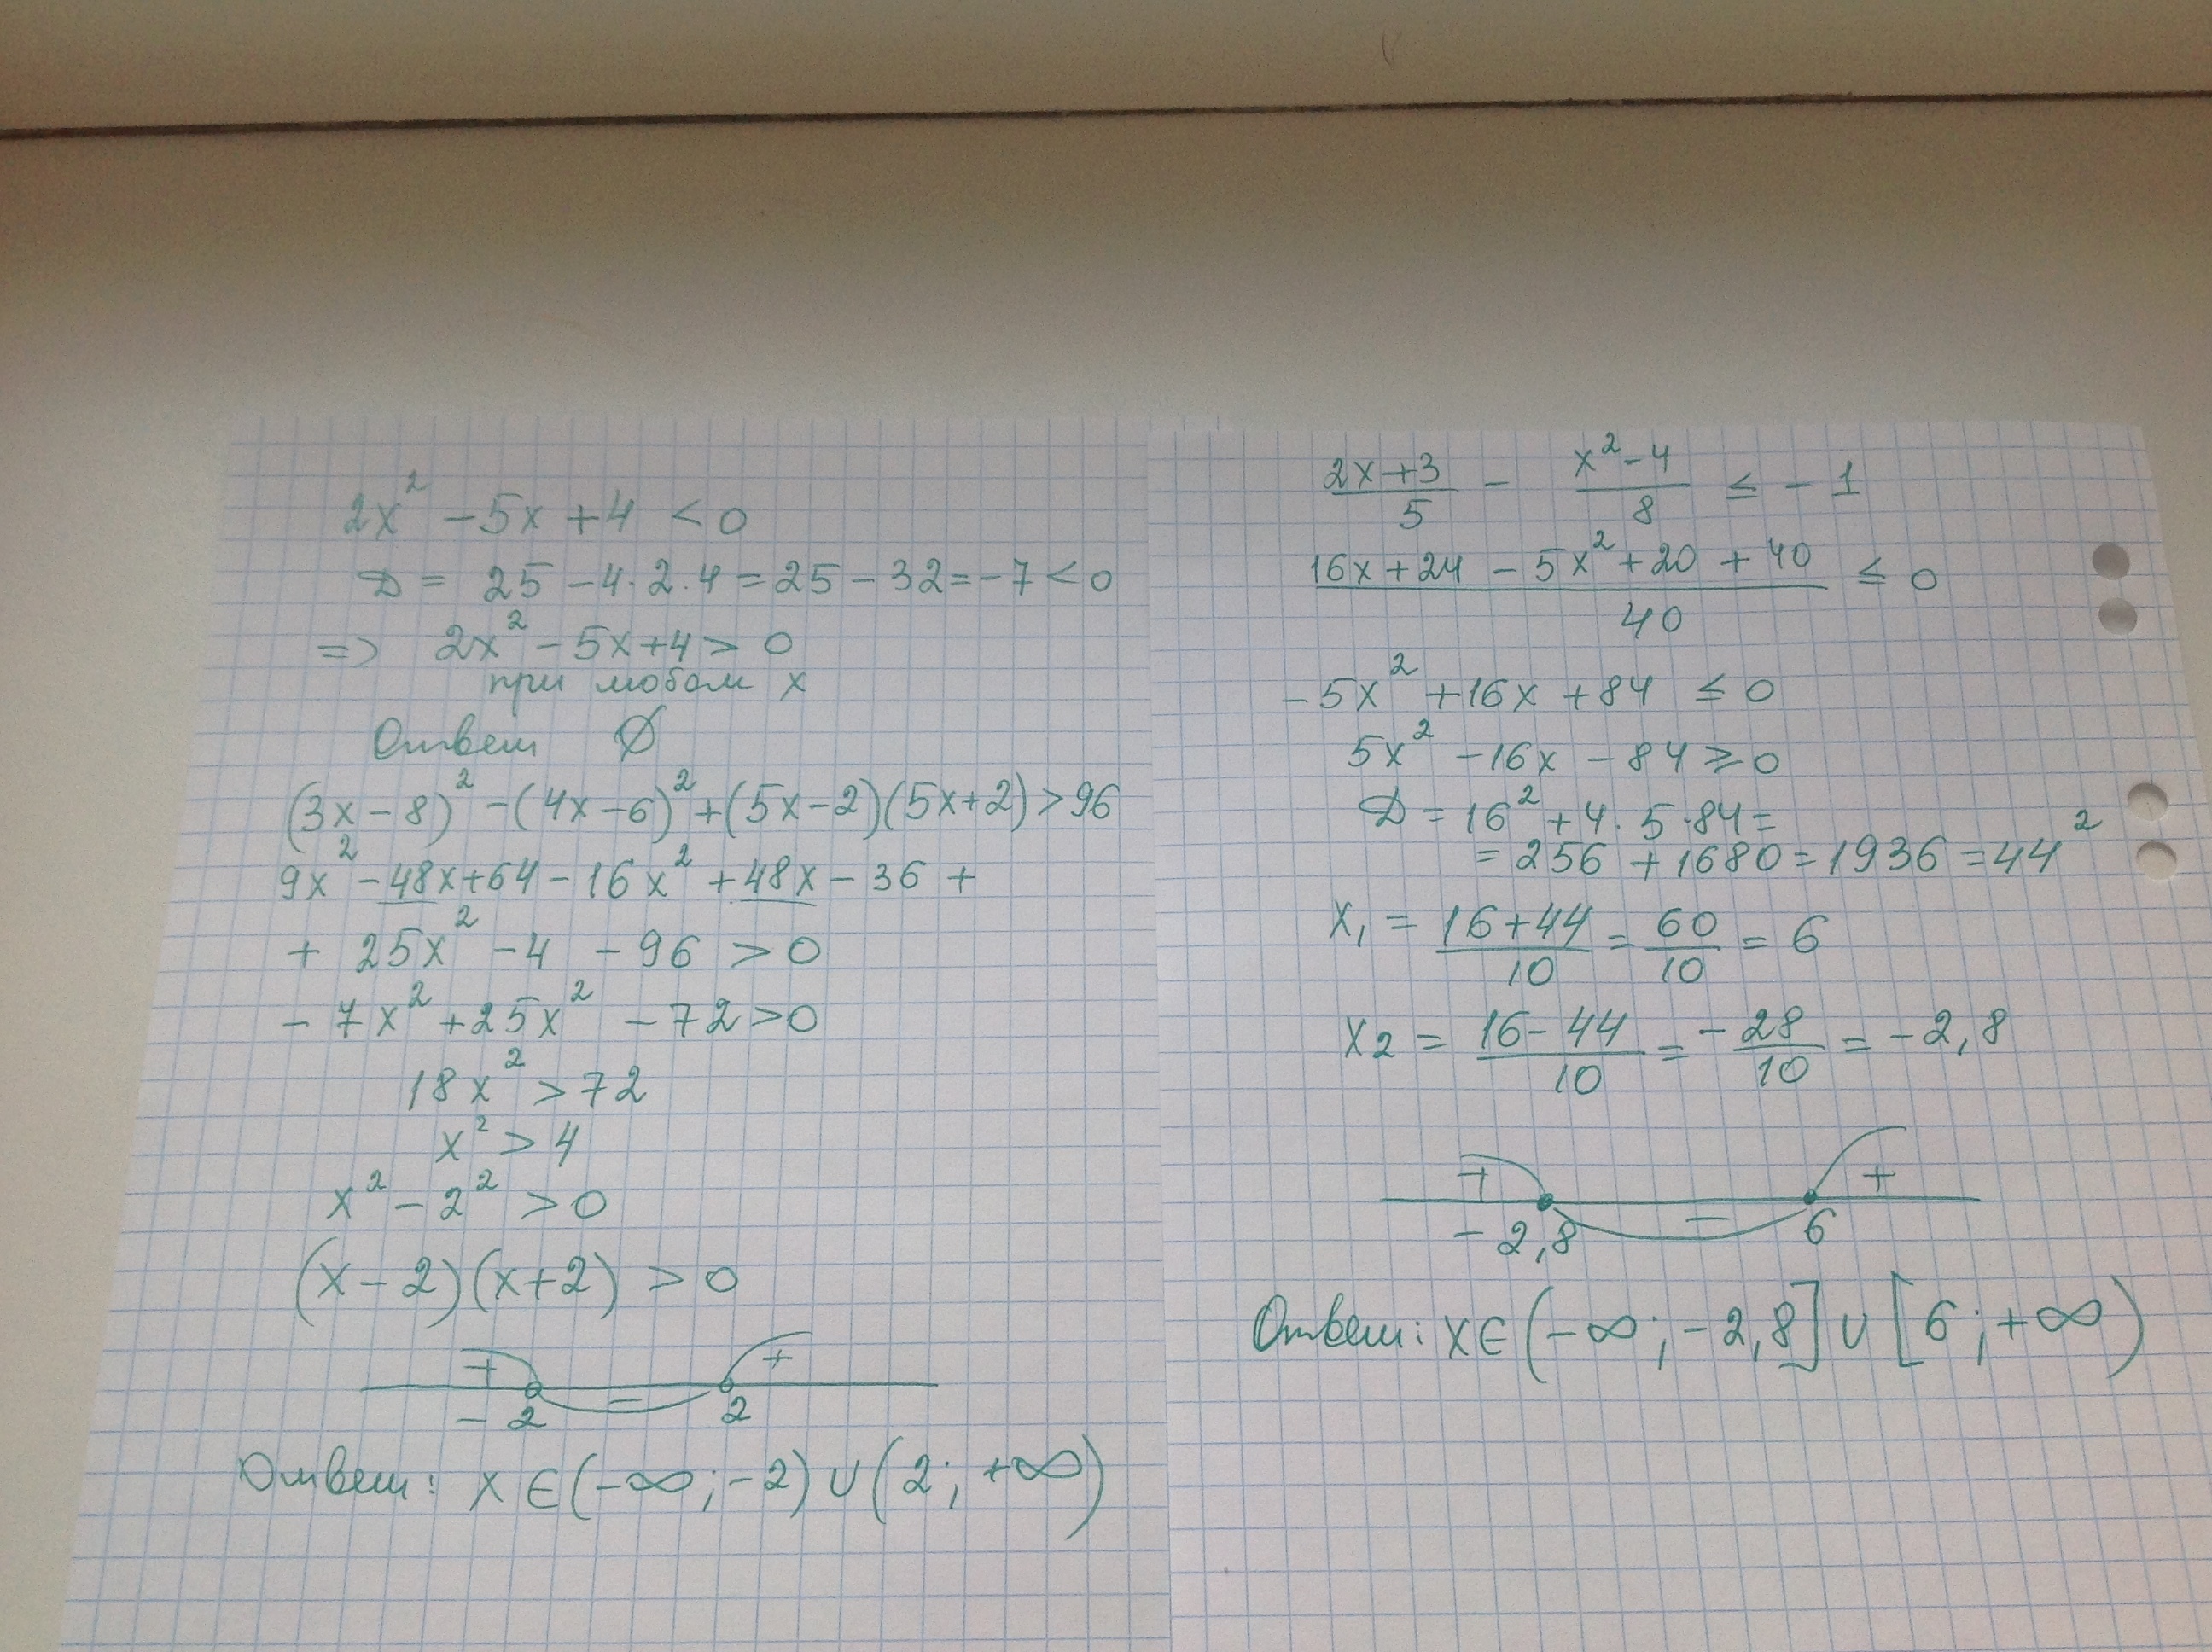 2x² - 5x + 4 < 0
D = 25 - 4·2·4 = 25 - 32 = -7 < 0
=> 2x² - 5x + 4 > 0
при любом x
Ответ ∅
(3x - 8)² - (4x - 6)² + (5x - 2)(5x + 2) > 96
9x² - 48x + 64 - 16x² + 48x - 36 +
+ 25x² - 4 - 96 > 0
- 7x² + 25x² - 72 > 0
18x² > 72
x² > 4
x² - 2² > 0
(x - 2)(x + 2) > 0
+ - +
-2 2
Ответ: x ∈ (-∞; -2) ∪ (2; +∞)
(2x+3)/5 - (x²-4)/8 ≤ -1
(16x + 24 - 5x² + 20 + 40)/40 ≤ 0
-5x² + 16x + 84 ≤ 0
5x² - 16x - 84 ≥ 0
D = 16² + 4·5·84 =
= 256 + 1680 = 1936 = 44²
x₁ = (16+44)/10 = 60/10 = 6
x₂ = (16-44)/10 = -28/10 = -2,8
+ - +
-2,8 6
Ответ: x ∈ (-∞; -2,8] ∪ [6; +∞)